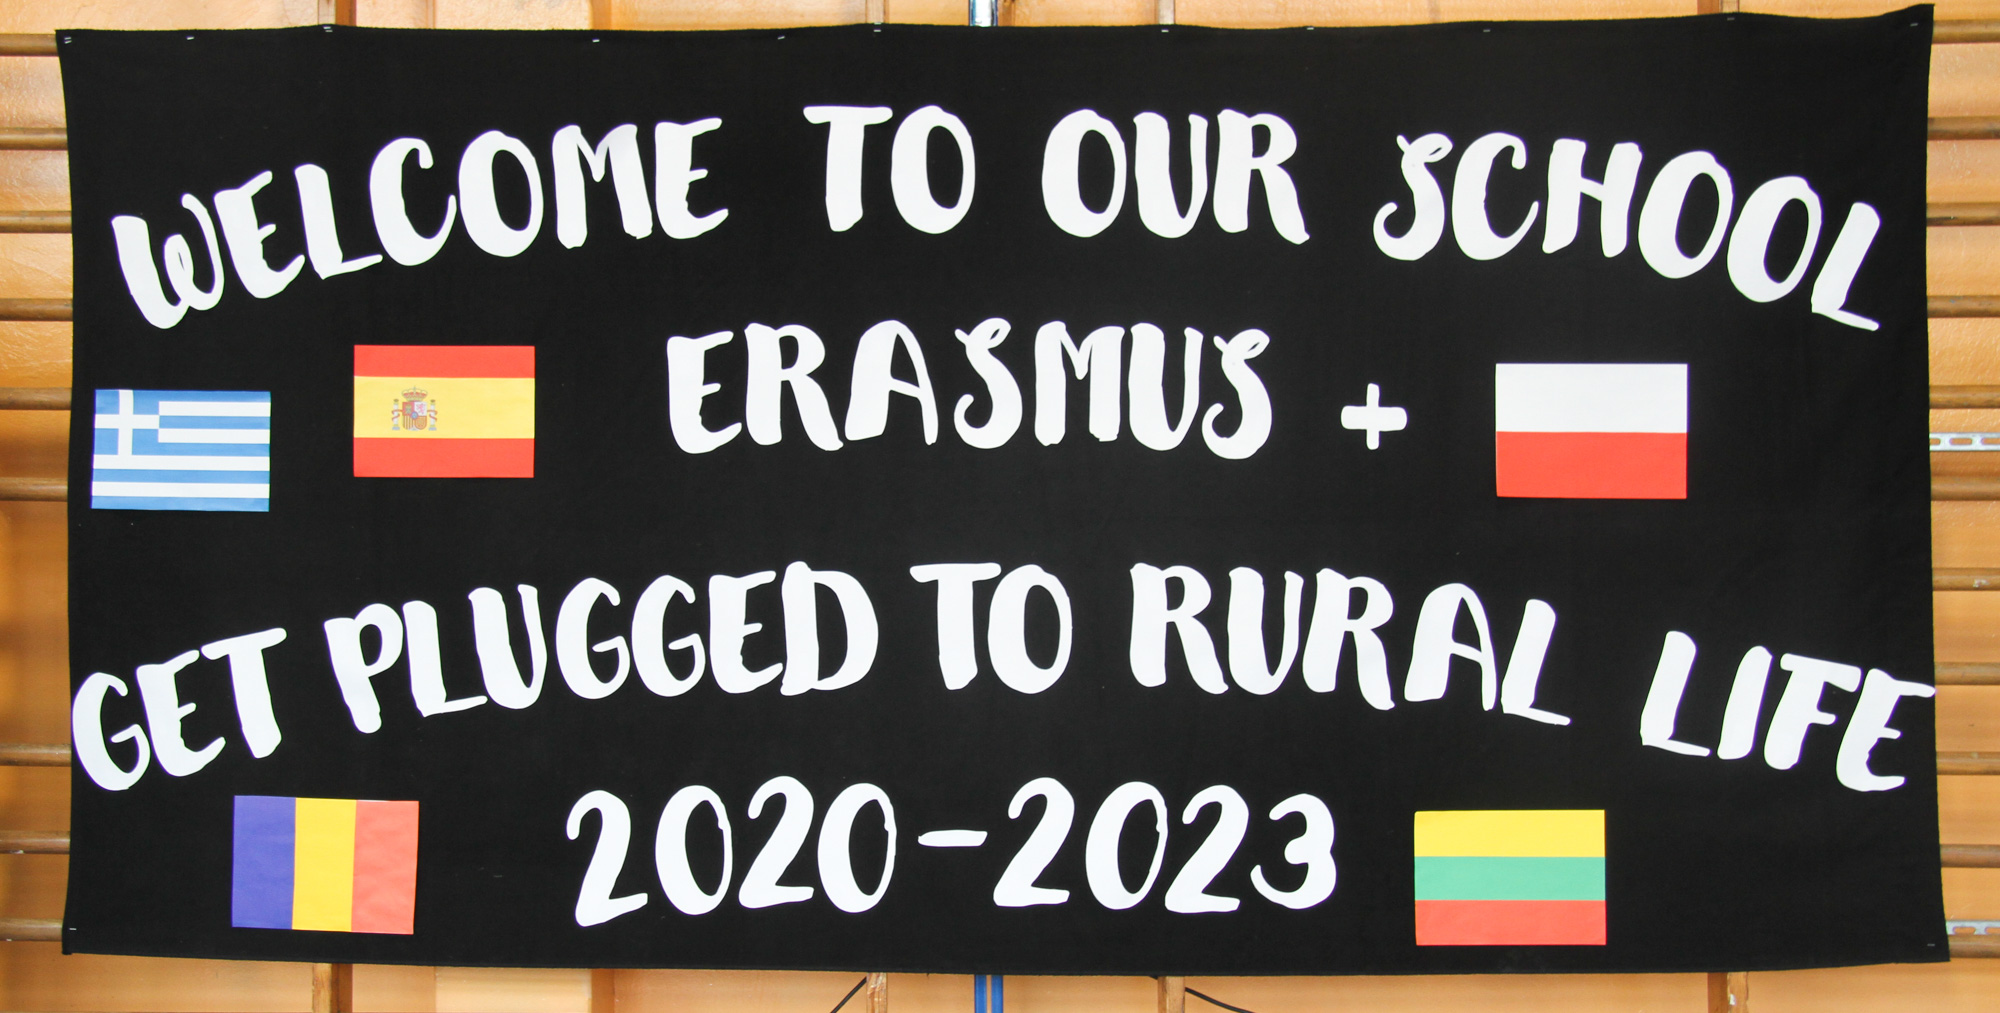 WELCOME TO OUR SCHOOL
ERASMUS +
GET PLUGGED TO RURAL LIFE
2020-2023